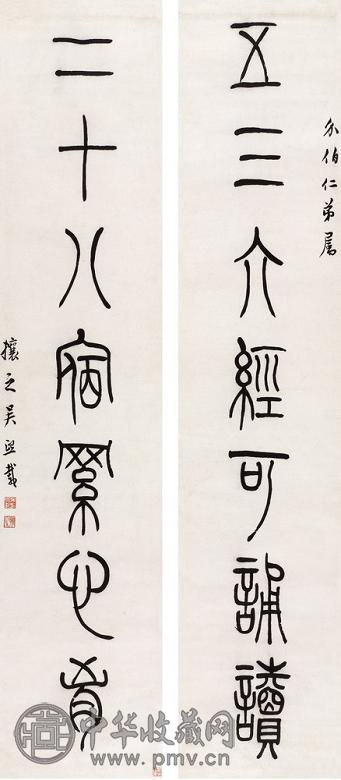 介伯仁弟屬
五三六經可誦讀
二十八宿羅心胷
攘之吴熙載
中华收藏网
www.pmv.cn